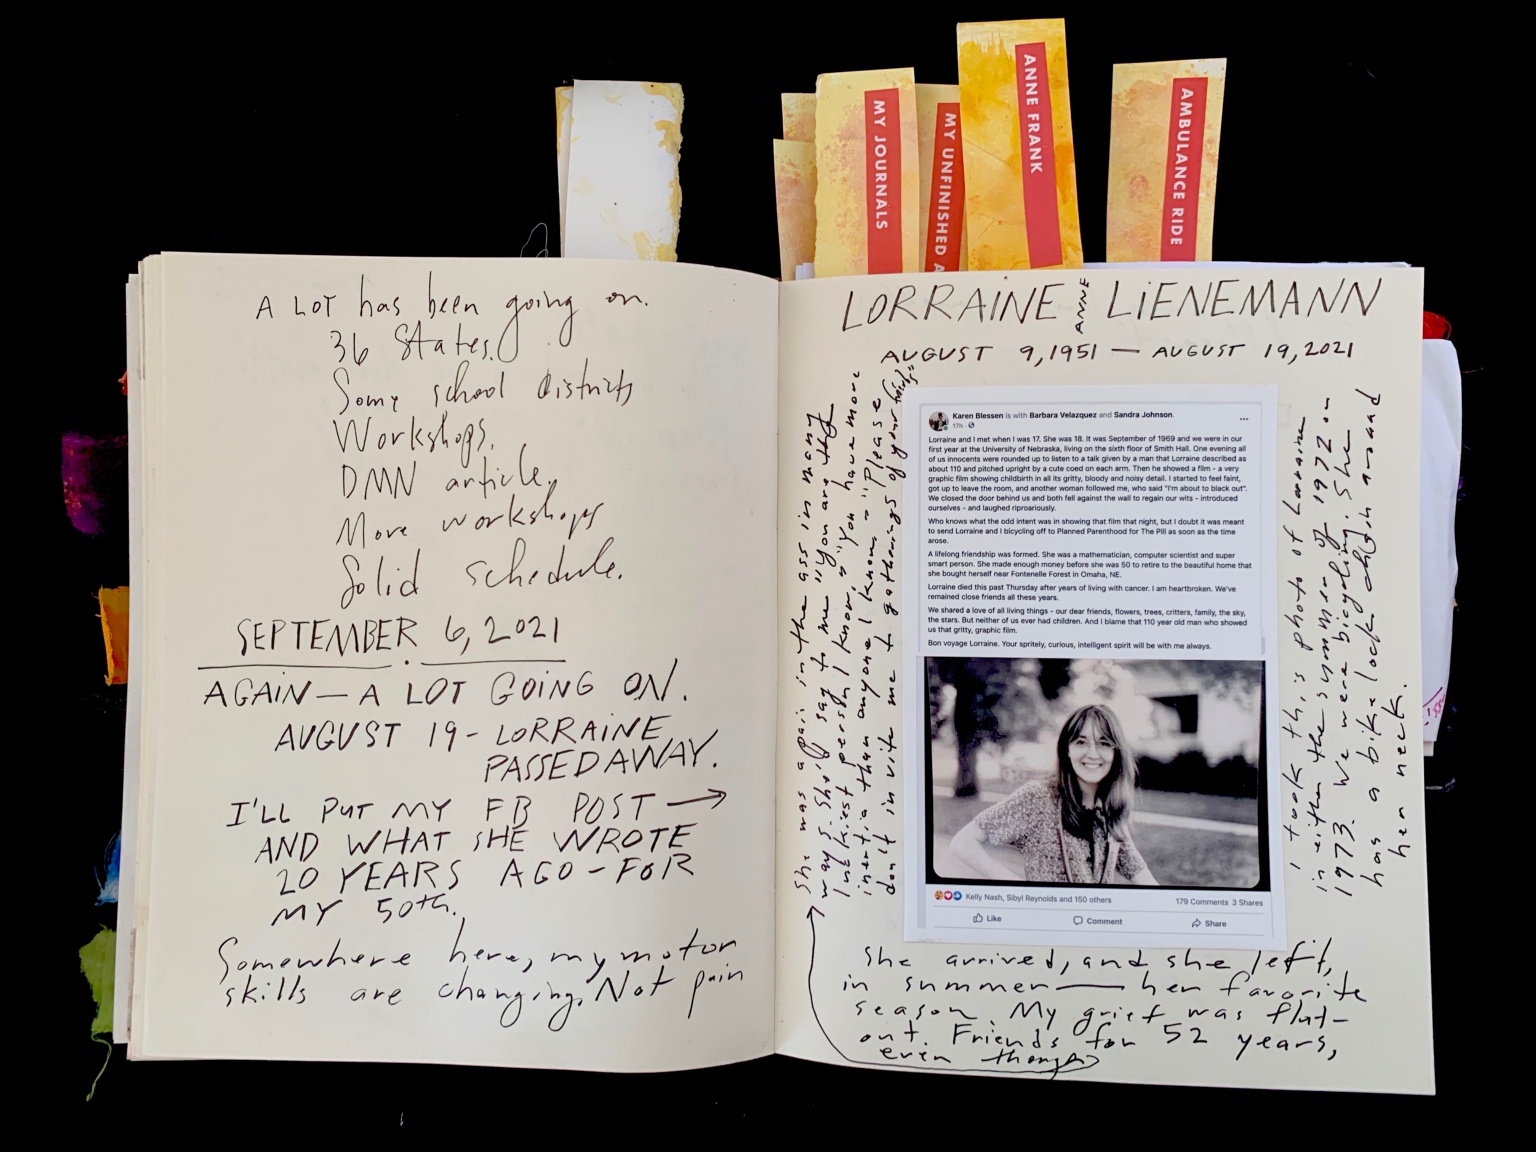 MY JOURNALS
MY UNFINISHED A
ANNE FRANK
AMBULANCE RIDE
A LOT has been going on.
36 States.
Some school districts
Workshops.
DMN article.
More workshops
Solid schedule.
SEPTEMBER 6, 2021
AGAIN — A LOT GOING ON.
AUGUST 19 - LORRAINE
PASSED AWAY.
I'LL PUT MY FB POST →
AND WHAT SHE WROTE
20 YEARS AGO - FOR
MY 50th.
Somewhere here, my motor
skills are changing. Not pain
LORRAINE ANNE LIENEMANN
AUGUST 9, 1951 — AUGUST 19, 2021
Karen Blessen is with Barbara Velazquez and Sandra Johnson.
17h
Lorraine and I met when I was 17. She was 18. It was September of 1969 and we were in our
first year at the University of Nebraska, living on the sixth floor of Smith Hall. One evening all
of us innocents were rounded up to listen to a talk given by a man that Lorraine described as
about 110 and pitched upright by a cute coed on each arm. Then he showed a film - a very
graphic film showing childbirth in all its gritty, bloody and noisy detail. I started to feel faint,
got up to leave the room, and another woman followed me, who said "I'm about to black out".
We closed the door behind us and both fell against the wall to regain our wits - introduced
ourselves - and laughed riproariously.
Who knows what the odd intent was in showing that film that night, but I doubt it was meant
to send Lorraine and I bicycling off to Planned Parenthood for The Pill as soon as the time
arose.
A lifelong friendship was formed. She was a mathematician, computer scientist and super
smart person. She made enough money before she was 50 to retire to the beautiful home that
she bought herself near Fontenelle Forest in Omaha, NE.
Lorraine died this past Thursday after years of living with cancer. I am heartbroken. We've
remained close friends all these years.
We shared a love of all living things - our dear friends, flowers, trees, critters, family, the sky,
the stars. But neither of us ever had children. And I blame that 110 year old man who showed
us that gritty, graphic film.
Bon voyage Lorraine. Your spritely, curious, intelligent spirit will be with me always.
Kelly Nash, Sibyl Reynolds and 150 others
179 Comments 3 Shares
Like
Comment
Share
I took this photo of Lorraine
in either the summer of 1972 or
1973. We were bicycling. She
has a bike lock chain around
her neck.
She arrived, and she left,
in summer — her favorite
season. My grief was flat-
out. Friends for 52 years,
even though
She was a pain in the ass in many
ways. She'd say to me "You are the
luckiest person I know," "You have more
inertia than anyone I know." "Please
don't invite me to gatherings of your friends"